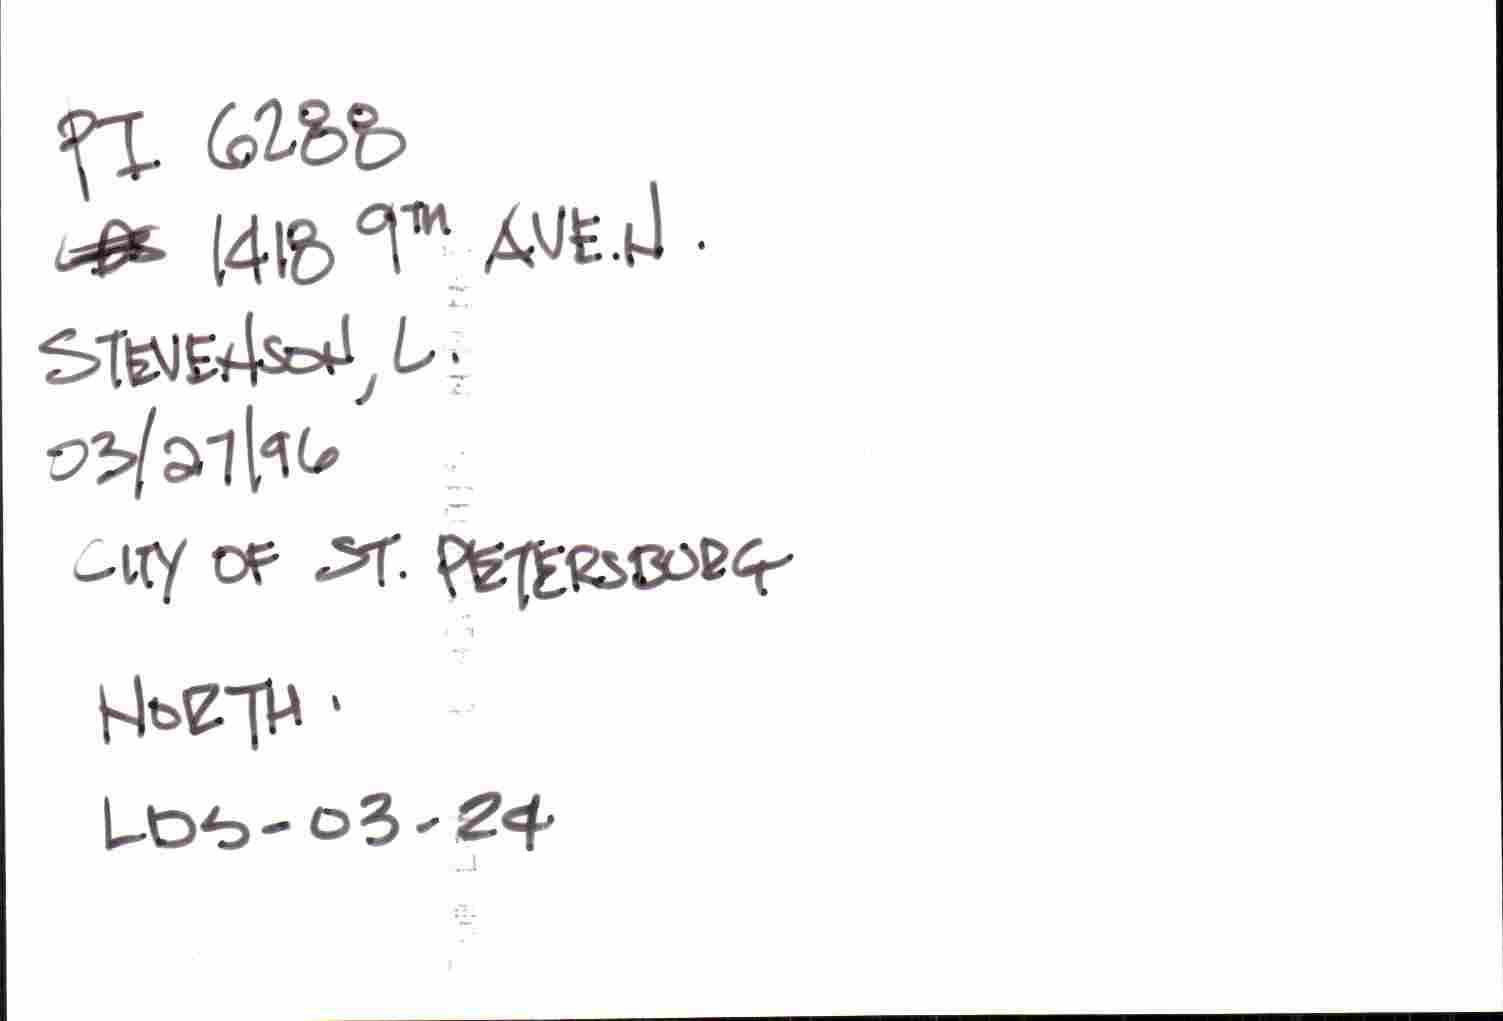 PI 6288
1418 9TH AVE.N.
STEVENSON, L.
03/27/96
CITY OF ST. PETERSBURG
NORTH.
LDS-03-24